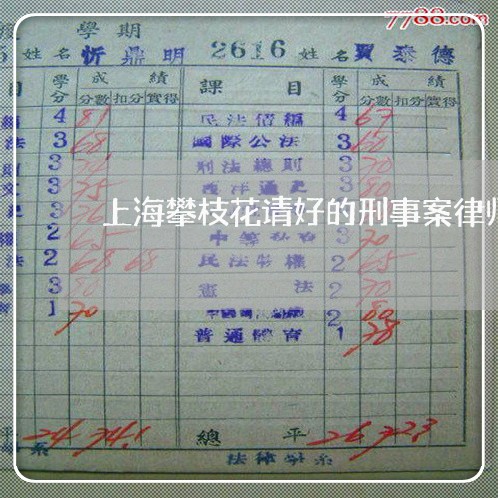 7788.com
學期
姓名 忻鼎明 2616 姓名 賈泰德
目 學分 成績 課目 學分 成績
分數 扣分 實得 分數 扣分 實得
4 81 民法債編 4 67
法 3 68 國際公法 3 60
3 刑法總則 3 70
3 75 西洋通史 3 80
上海攀枝花请好的刑事案律师
2 65 3 70
法 2 68 68 民法物權 2 65
3 80 憲法 2 70
1 70 2 80
普通體育 1 78
平 24 74.1 總平 26 72.3
系 法律學系